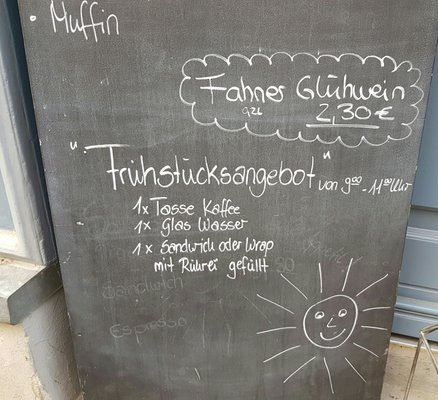 • Muffin
Fahner Glühwein
0,2l 2,30 €
"Frühstücksangebot" von 9⁰⁰ - 11⁰⁰ Uhr
1x Tasse Kaffee
1x Glas Wasser
1x Sandwich oder Wrap
mit Rührei gefüllt
Sandwich
Espresso